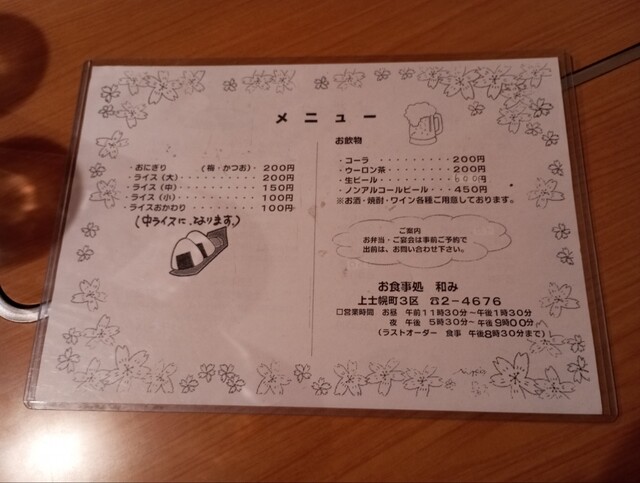 メニュー
・おにぎり (梅・かつお)・200円
・ライス(大)・・・・・・・・・200円
・ライス(中)・・・・・・・・・150円
・ライス(小)・・・・・・・・・100円
・ライスおかわり・・・・・・・100円
(中ライスに、なります。)
お飲物
・コーラ・・・・・・・・・200円
・ウーロン茶・・・・・・・200円
・生ビール・・・・・・・・600円
・ノンアルコールビール・・・450円
※お酒・焼酎・ワイン各種ご用意しております。
ご案内
お弁当・ご宴会は事前ご予約で
出前は、お問い合わせ下さい。
お食事処 和み
上士幌町3区 ☎2-4676
□営業時間 お昼 午前11時30分~午後1時30分
夜 午後 5時30分~午後9時00分
(ラストオーダー 食事 午後8時30分まで)